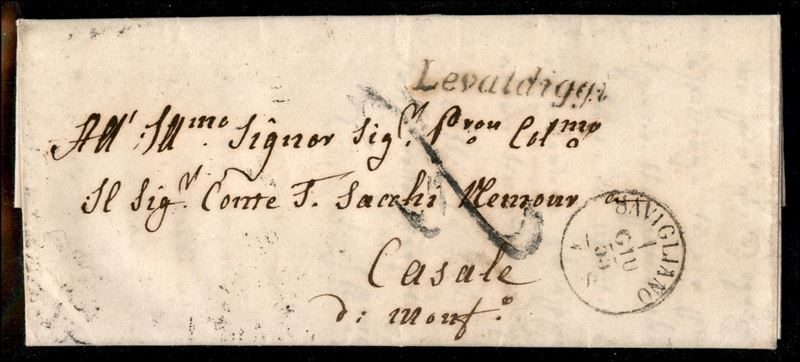 Levaldiggi
All' Ill.mo Signor Sig.r P.ron Col.mo
Il Sig.r Conte F. Sacchi Nemour
Casale
di Monf.o
SAVIGLIANO
GIU